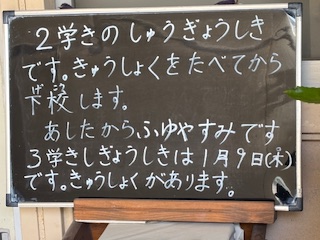 2学きのしゅうぎょうしき
です。きゅうしょくをたべてから
下校します。
げこう
あしたから、ふゆやすみです
3学きしぎょうしきは1月9日(木)
です。きゅうしょくがあります。